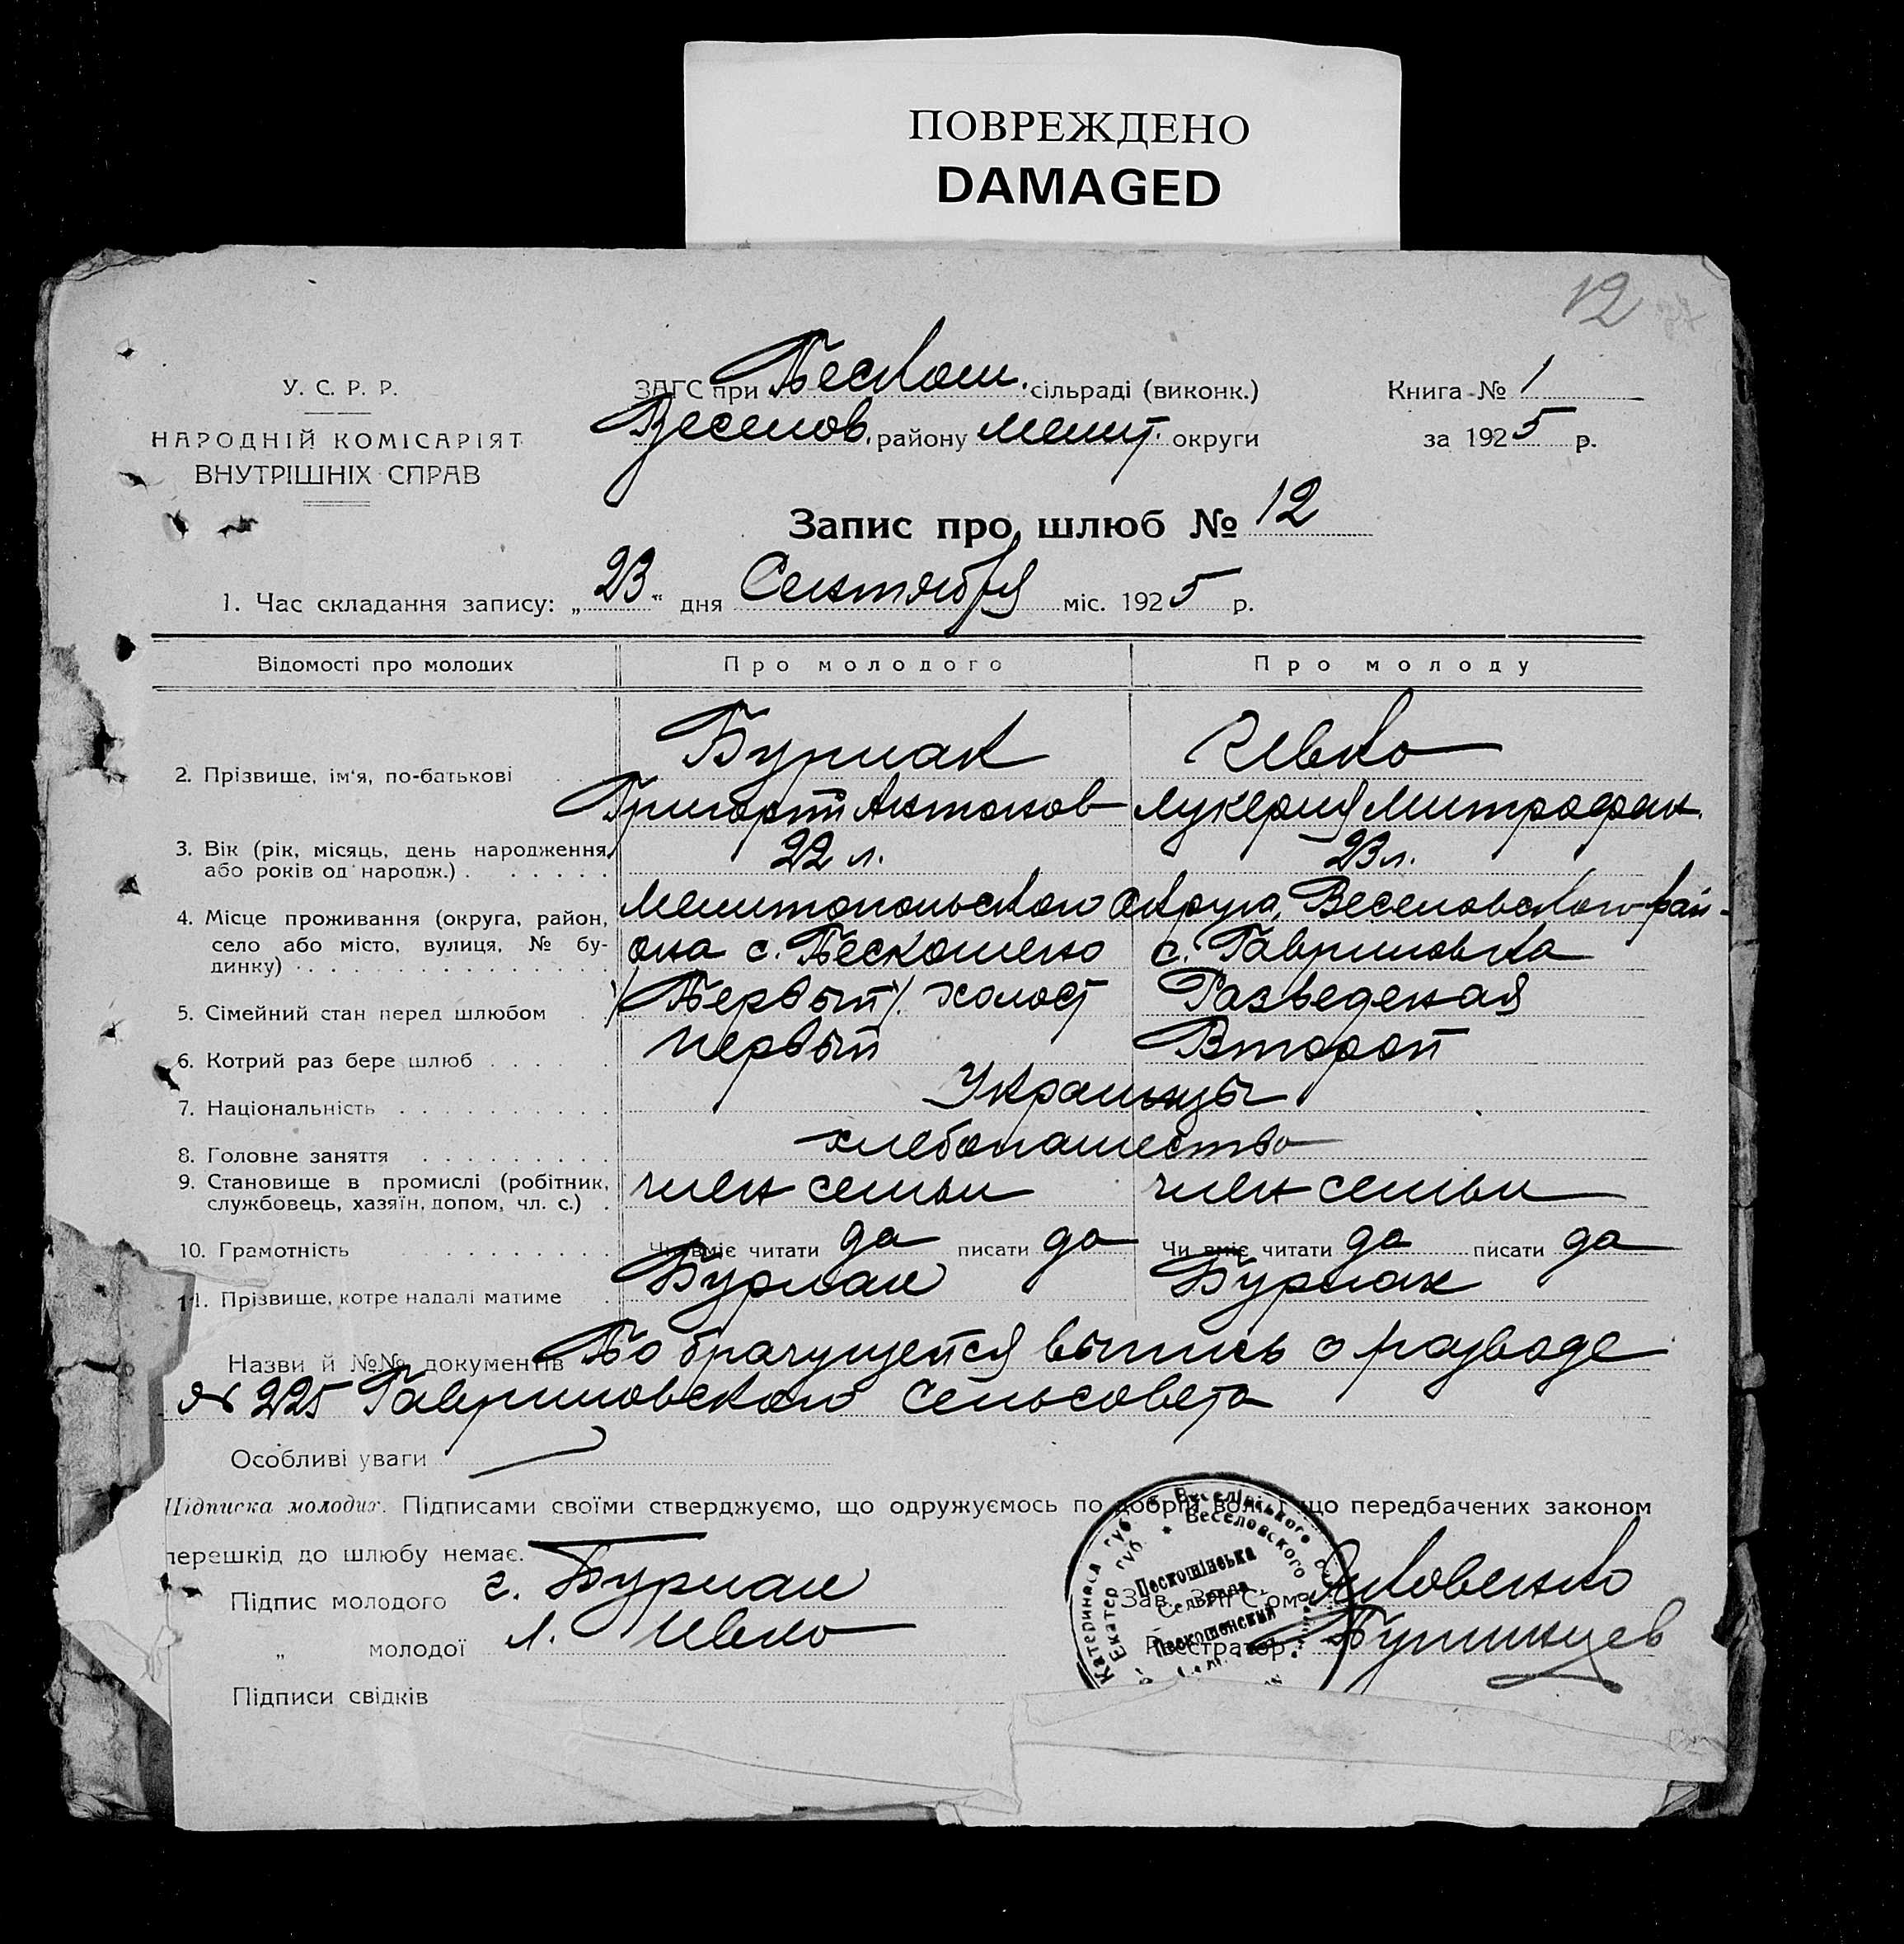 ПОВРЕЖДЕНО
DAMAGED
12
У. С. Р. Р.
НАРОДНІЙ КОМІСАРІЯТ
ВНУТРІШНІХ СПРАВ
ЗАГС при Пескош. сільраді (виконк.)
Веселов. району Мелит. округи
Книга № 1
за 1925 р.
Запис про шлюб № 12
1. Час складання запису: „ 23 “ дня Сентября міс. 1925 р.
Відомості про молодих
Про молодого
Про молоду
2. Прізвище, ім‘я, по-батькові
Бурлак
Ивко
Григорий Антонов
Лукерия Митрофан.
3. Вік (рік, місяць, день народження,
або років од народж.)
22 л.
23 л.
4. Місце проживання (округа, район,
село або місто, вулиця, № бу-
динку)
Мелитопольского Округа, Веселовского рай-
она с. Пескошено
с. Гавриловка
5. Сімейний стан перед шлюбом
(Первый) холост
Разведеная
6. Котрий раз бере шлюб
первый
Второй
7. Національність
Украинцы
8. Головне заняття
хлебопашество
9. Становище в промислі (робітник,
службовець, хазяїн, допом, чл. с.)
член семьи
член семьи
10. Грамотність
Чи вміє читати да писати да
Чи вміє читати да писати да
11. Прізвище, котре надалі матиме
Бурлак
Бурлак
Назви й №№ документів По брачущейся выпись о разводе
№ 225 Гавриловского Сельсовета
Особливі уваги
Підписка молодих. Підписами своїми стверджуємо, що одружуємось по добрій волі і що передбачених законом
перешкід до шлюбу немає.
Підпис молодого г. Бурлак
„ молодої л. Ивко
Підписи свідків
Зав. ЗАГС‘ом Яковенко
Реєстратор
Катеринська губ. Веселівського
Екатер. губ. * Веселовского
Пескошінська
Сельрада
Пескошенский